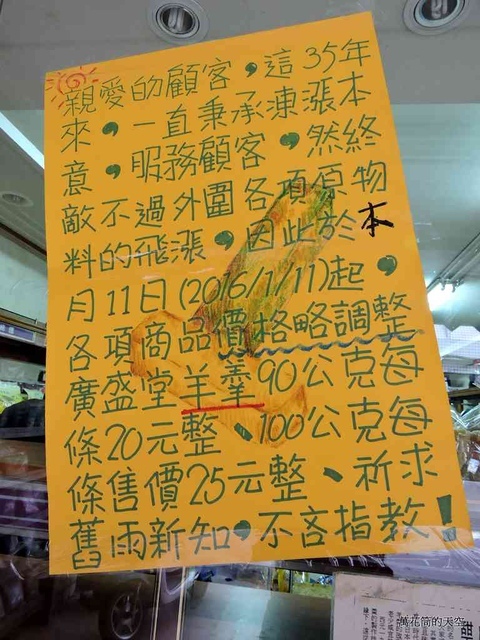 親愛的顧客，這35年
來，一直秉承凍漲本
意，服務顧客，然終
敵不過外圍各項原物
料的飛漲，因此於本
月11日(2016/1/11)起，
各項商品價格略調整
廣盛堂羊羹90公克每
條20元整、100公克每
條售價25元整、祈求
舊雨新知，不吝指教！
萬花筒的天空